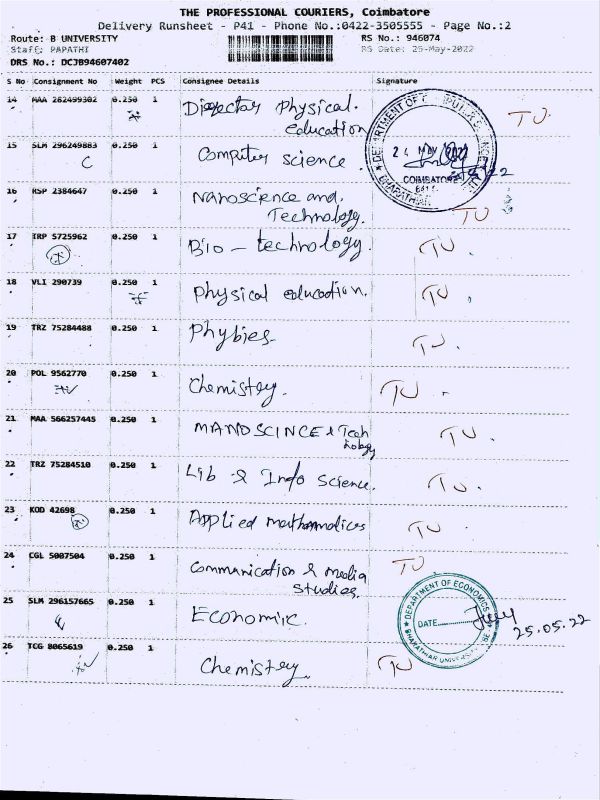 THE PROFESSIONAL COURIERS, Coimbatore
Delivery Runsheet - P41 - Phone No.:0422-3505555 - Page No.:2
Route: B UNIVERSITY RS No.: 946074
Staff: PAPATHI RS Date: 25-May-2022
DRS No.: DCJB94607402
S No Consignment No Weight PCS Consignee Details Signature
14 MAA 262499302 0.250 1 Director Physical. TU.
education
15 SLM 296249883 0.250 1 Computer science.
DEPARTMENT OF
COIMBATORE
BHARATHIAR
16 KSP 2384647 0.250 1 Nanoscience and. TU
Technology.
17 TRP 5725962 0.250 1 Bio - technology. TU.
18 VLI 290739 0.250 1 Physical education. TU,
19 TRZ 75284488 0.250 1 Phybies TU.
20 POL 9562770 0.250 1 Chemistry. TU.
21 MAA 566257445 0.250 1 NANOSCINCE & Tech TU.
nology
22 TRZ 75284510 0.250 1 Lib & Info Science. TU.
23 KOD 42698 0.250 1 Applied mathamadices TU.
24 CGL 5007504 0.250 1 Communication & media TU.
studies.
25 SLM 296157665 0.250 1 Economic.
DEPARTMENT OF ECONOMICS
DATE
BHARATHIAR UNIVERSITY
25.05.22
26 TCG 8065619 0.250 1 Chemistry. TU